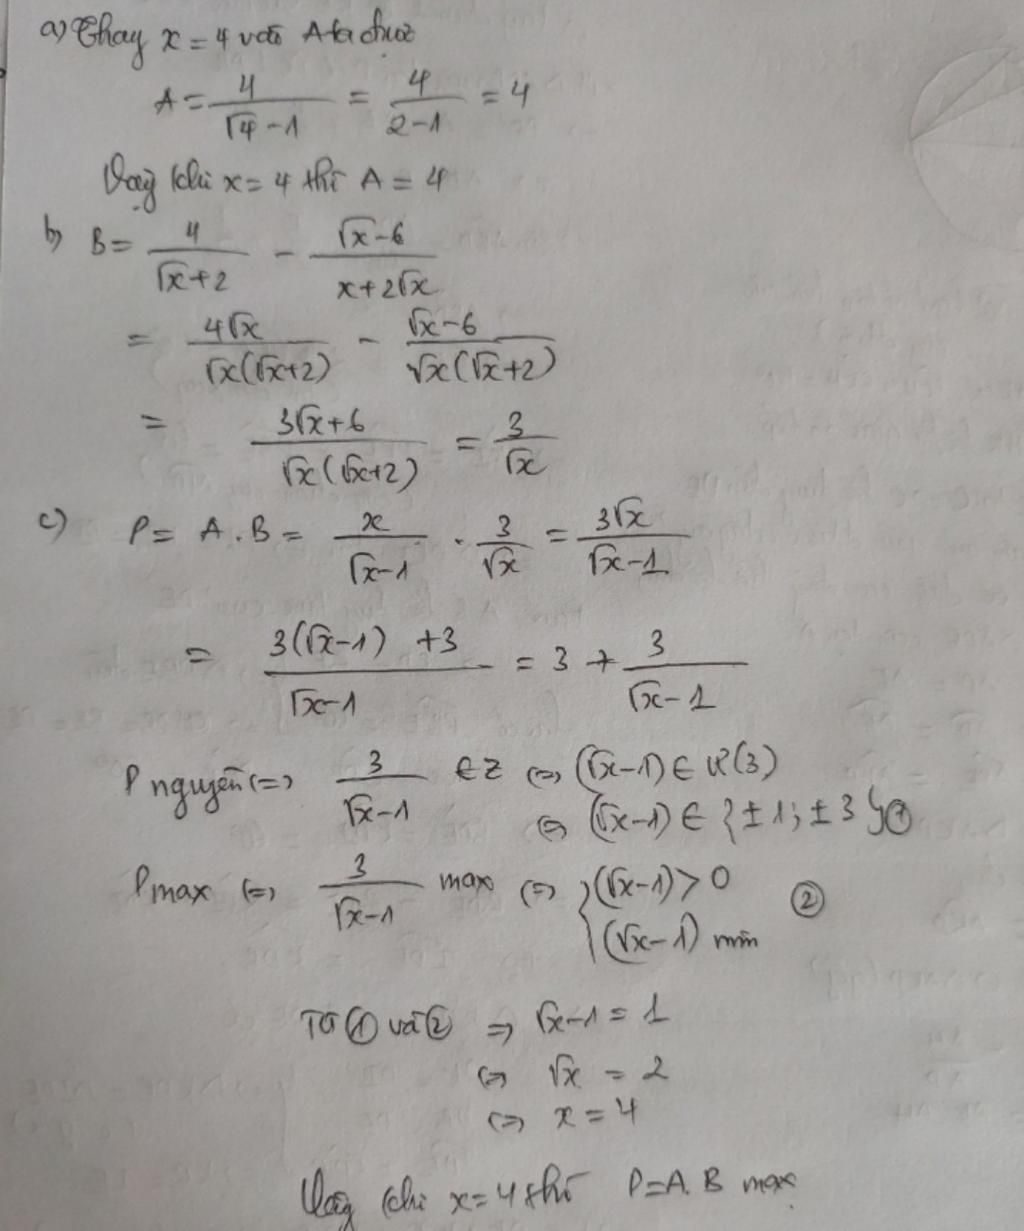 a) Thay x = 4 vào A ta được
A = 4/(√4 - 1) = 4/(2-1) = 4
Vậy khi x = 4 thì A = 4
b) B = 4/(√x+2) - (√x-6)/(x+2√x)
= 4√x/(√x(√x+2)) - (√x-6)/(√x(√x+2))
= (3√x+6)/(√x(√x+2)) = 3/√x
c) P = A.B = x/(√x-1) . 3/√x = 3√x/(√x-1)
= (3(√x-1) +3)/(√x-1) = 3 + 3/(√x-1)
P nguyên (=) 3/(√x-1) ∈ Z (=) (√x-1) ∈ Ư(3)
(=) (√x-1) ∈ {±1; ±3} ①
Pmax (=) 3/(√x-1) max (=) { (√x-1) > 0 ②
(√x-1) min
Từ ① và ② => √x-1 = 1
(=) √x = 2
(=) x = 4
Vậy khi x = 4 thì P = A.B max